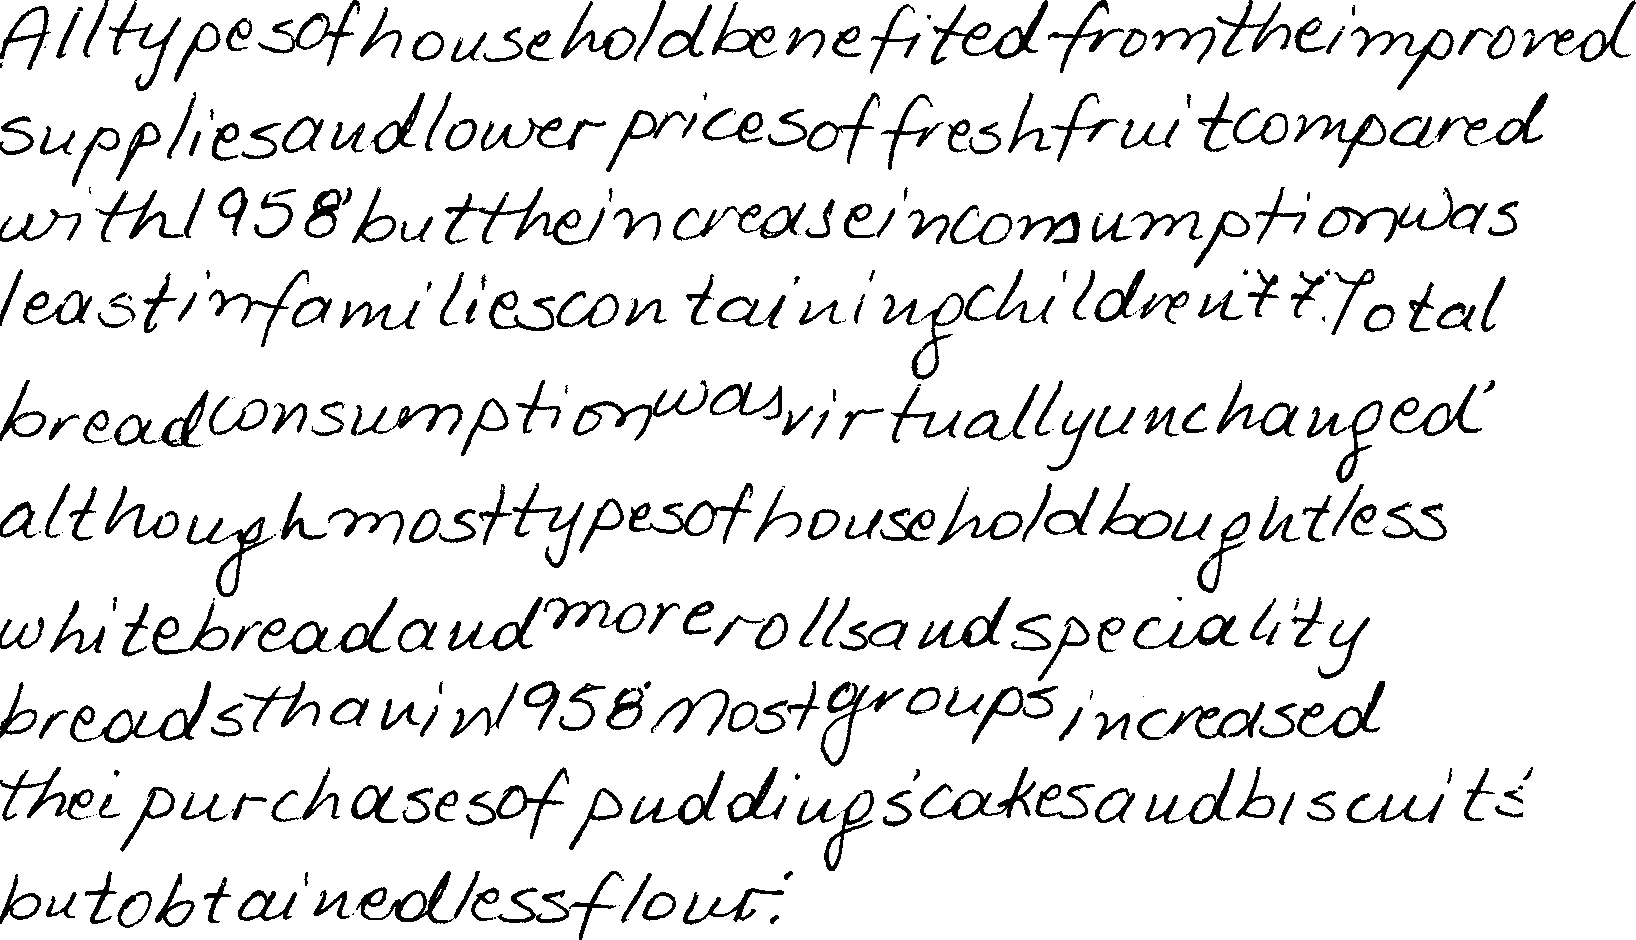 All types of household benefited from the improved
supplies and lower prices of fresh fruit compared
with 1958' but the increase in consumption was
least in families containing children. Total
bread consumption was virtually unchanged'
although most types of household bought less
white bread and more rolls and speciality
breads than in 1958. Most groups increased
thei purchases of puddings' cakes and biscuits'
but obtained less flour.